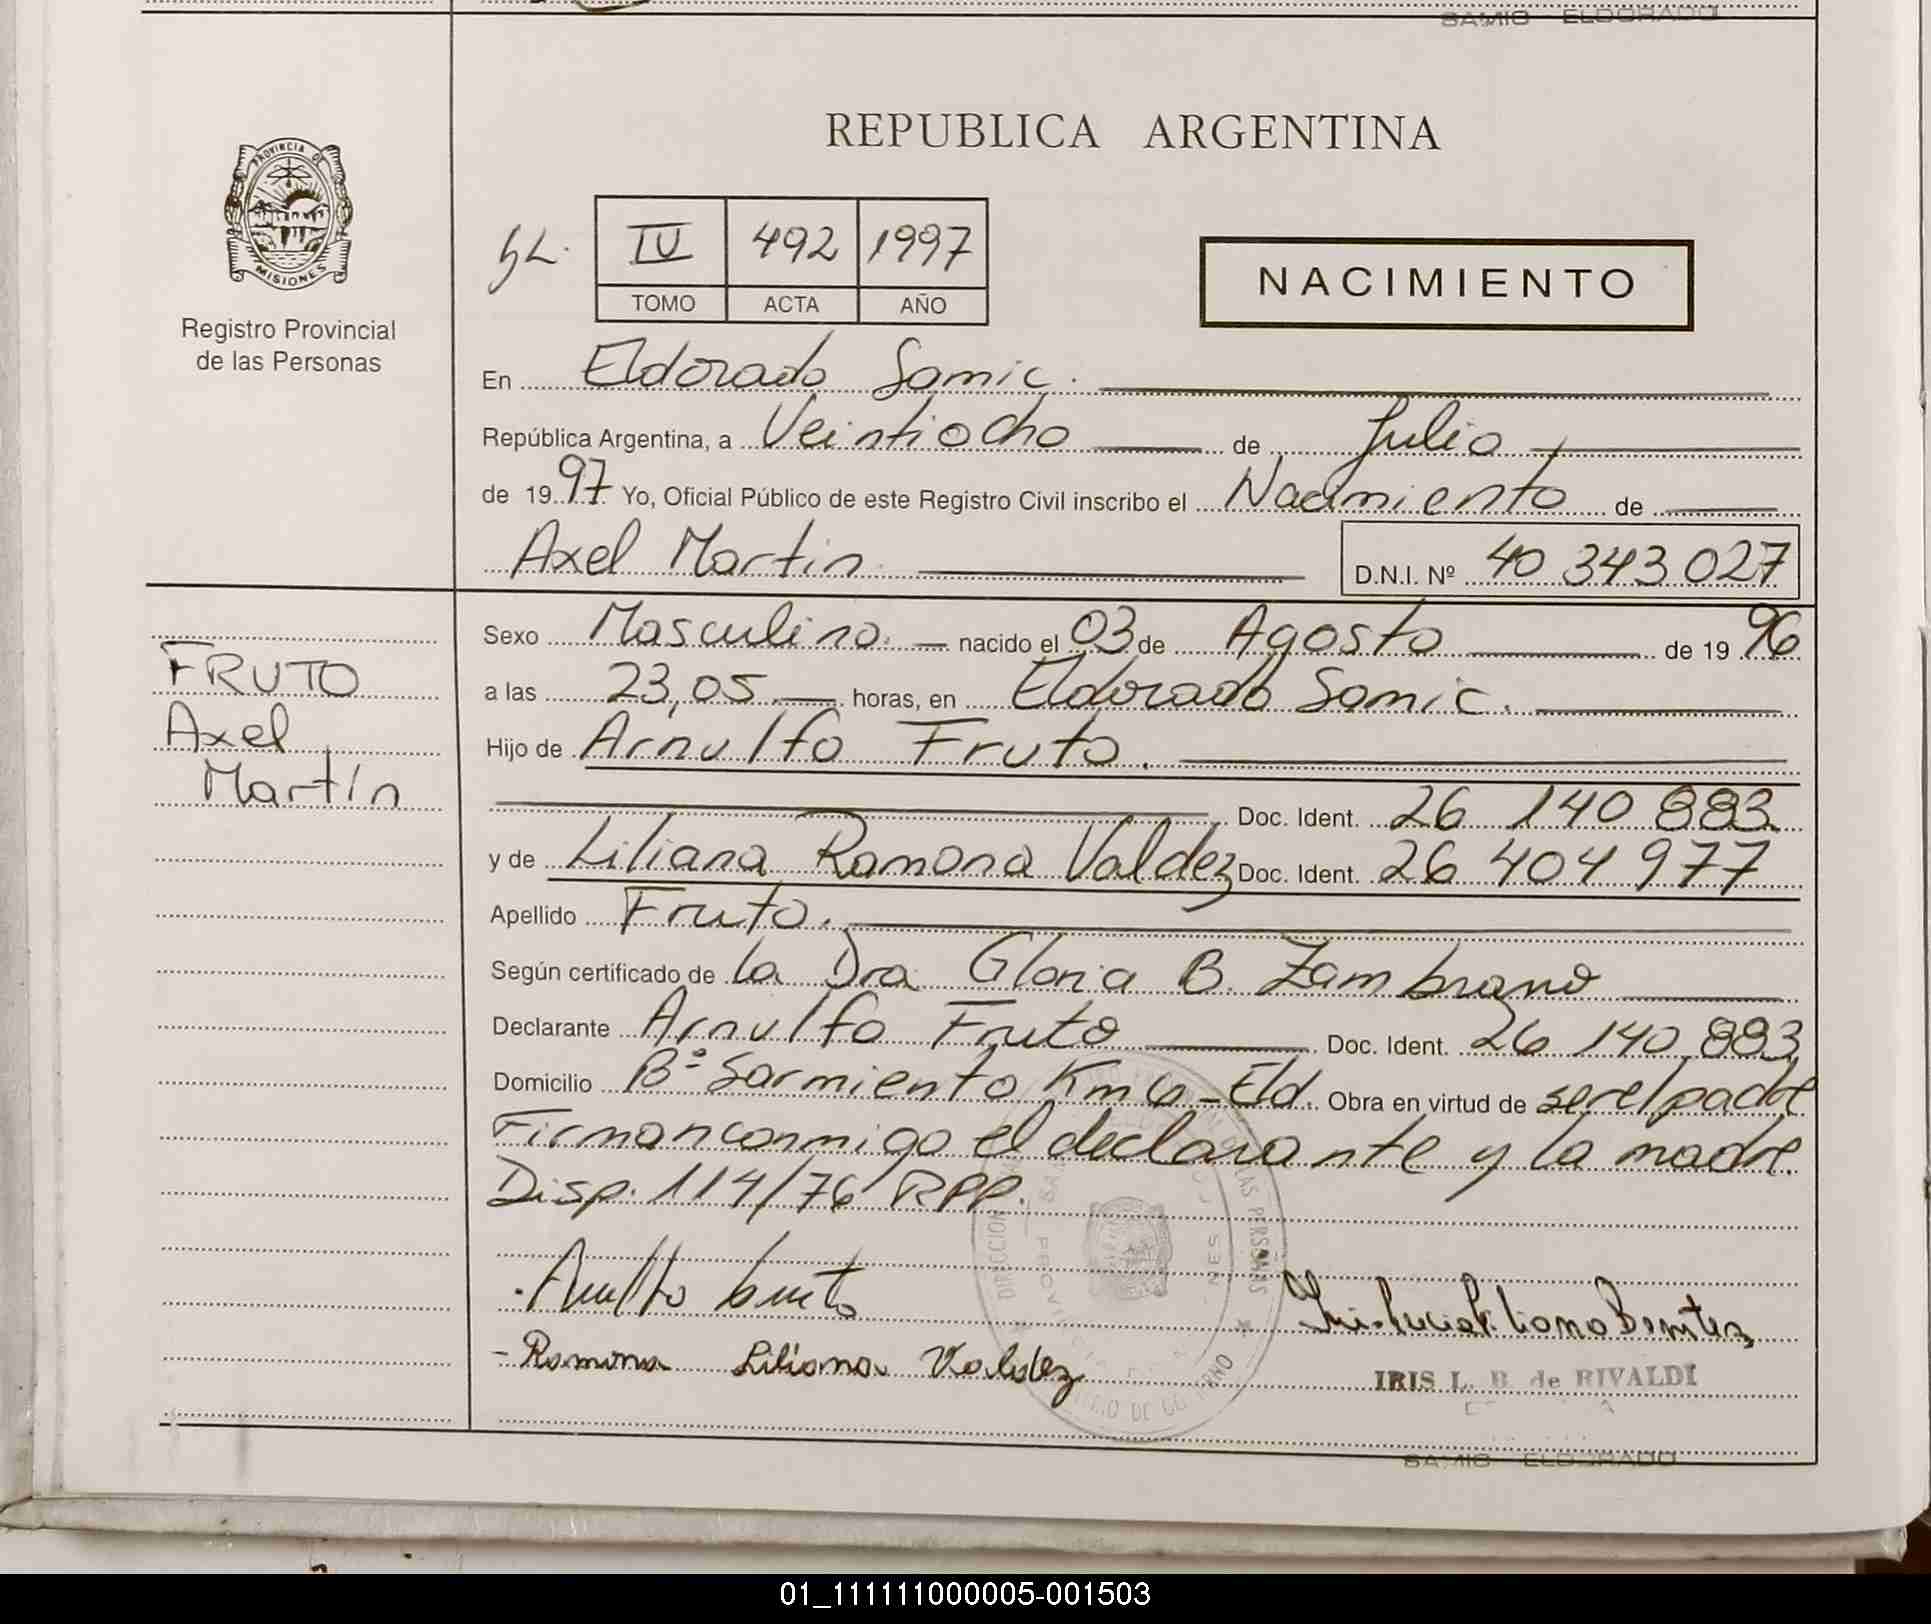 SAMIC ELDORADO
REPUBLICA ARGENTINA
PROVINCIA DE
MISIONES
Registro Provincial
de las Personas
IV 492 1997
TOMO ACTA AÑO
NACIMIENTO
En Eldorado Samic.
República Argentina, a Veintiocho de Julio
de 1997 Yo, Oficial Público de este Registro Civil inscribo el Nacimiento de
Axel Martin D.N.I. Nº 40 343 027
FRUTO
Axel
Martín
Sexo Masculino. nacido el 03 de Agosto de 1996
a las 23,05 horas, en Eldorado Samic.
Hijo de Arnulfo Fruto.
Doc. Ident. 26 140 883
y de Liliana Ramona Valdez Doc. Ident. 26 404 977
Apellido Fruto.
Según certificado de la Dra Gloria B. Zambrano
Declarante Arnulfo Fruto Doc. Ident. 26 140 883
Domicilio Bº Sarmiento Km 6 - Eld. Obra en virtud de ser el padre
Firman conmigo el declarante y la madre.
Disp. 114/76 RPP.
- Ramona Liliana Valdez
IRIS L. B. de RIVALDI
SAMIC ELDORADO
01_111111000005-001503